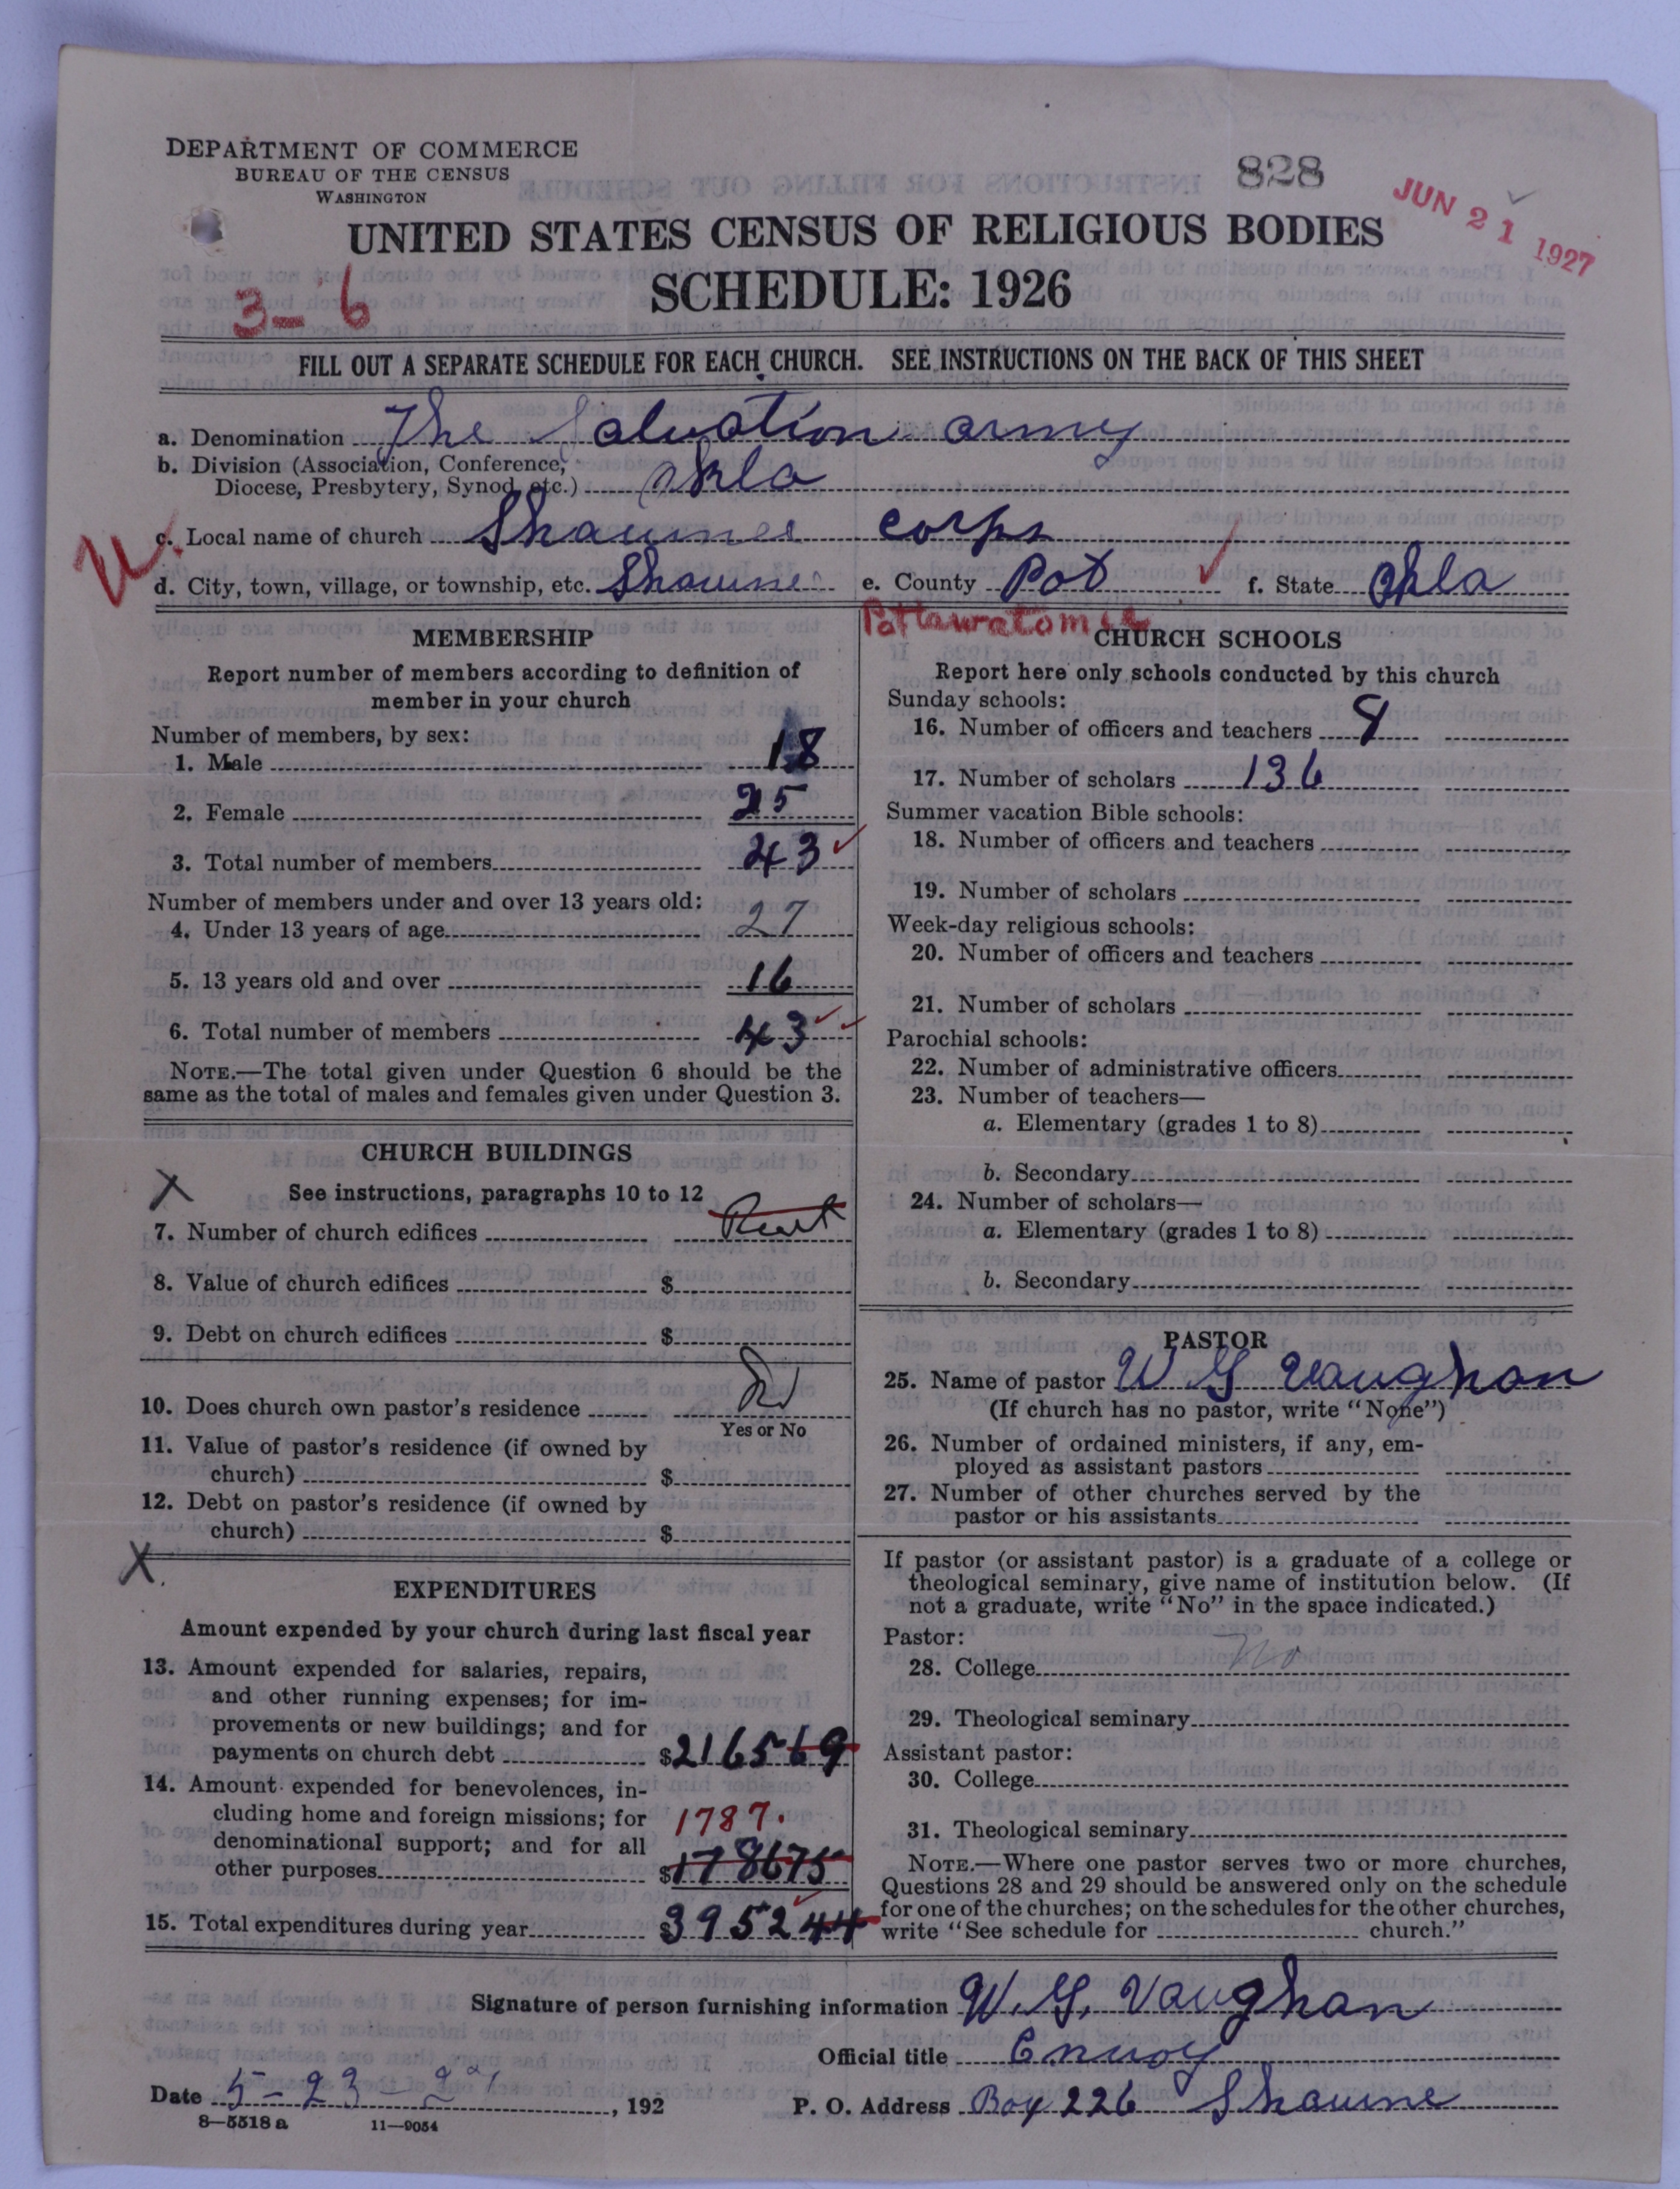 DEPARTMENT OF COMMERCE
BUREAU OF THE CENSUS
WASHINGTON
828
JUN 21 1927
UNITED STATES CENSUS OF RELIGIOUS BODIES
SCHEDULE: 1926
3-6
FILL OUT A SEPARATE SCHEDULE FOR EACH CHURCH. SEE INSTRUCTIONS ON THE BACK OF THIS SHEET
a. Denomination The Salvation army
b. Division (Association, Conference,
Diocese, Presbytery, Synod, etc.) Okla
c. Local name of church Shawnee corps
d. City, town, village, or township, etc. Shawnee e. County Pot f. State Okla
Pottawatomie
MEMBERSHIP
Report number of members according to definition of
member in your church
Number of members, by sex:
1. Male 18
2. Female 25
3. Total number of members 43
Number of members under and over 13 years old:
4. Under 13 years of age 27
5. 13 years old and over 16
6. Total number of members 43
NOTE.—The total given under Question 6 should be the
same as the total of males and females given under Question 3.
CHURCH BUILDINGS
X
See instructions, paragraphs 10 to 12
7. Number of church edifices Rent
8. Value of church edifices $
9. Debt on church edifices $
10. Does church own pastor's residence No
Yes or No
11. Value of pastor's residence (if owned by
church) $
12. Debt on pastor's residence (if owned by
church) $
X
EXPENDITURES
Amount expended by your church during last fiscal year
13. Amount expended for salaries, repairs,
and other running expenses; for im-
provements or new buildings; and for
payments on church debt $2165 69
14. Amount expended for benevolences, in-
cluding home and foreign missions; for 1787.
denominational support; and for all
other purposes $178675
15. Total expenditures during year $3952 44
CHURCH SCHOOLS
Report here only schools conducted by this church
Sunday schools:
16. Number of officers and teachers
17. Number of scholars 136
Summer vacation Bible schools:
18. Number of officers and teachers
19. Number of scholars
Week-day religious schools:
20. Number of officers and teachers
21. Number of scholars
Parochial schools:
22. Number of administrative officers
23. Number of teachers—
a. Elementary (grades 1 to 8)
b. Secondary
24. Number of scholars—
a. Elementary (grades 1 to 8)
b. Secondary
PASTOR
25. Name of pastor W G Vaughan
(If church has no pastor, write "None")
26. Number of ordained ministers, if any, em-
ployed as assistant pastors
27. Number of other churches served by the
pastor or his assistants
If pastor (or assistant pastor) is a graduate of a college or
theological seminary, give name of institution below. (If
not a graduate, write "No" in the space indicated.)
Pastor:
28. College No
29. Theological seminary
Assistant pastor:
30. College
31. Theological seminary
NOTE.—Where one pastor serves two or more churches,
Questions 28 and 29 should be answered only on the schedule
for one of the churches; on the schedules for the other churches,
write "See schedule for church."
Signature of person furnishing information W. G. Vaughan
Official title Envoy
Date 5-23-27, 192
P. O. Address Box 226 Shawnee
8—5518 a 11—9054